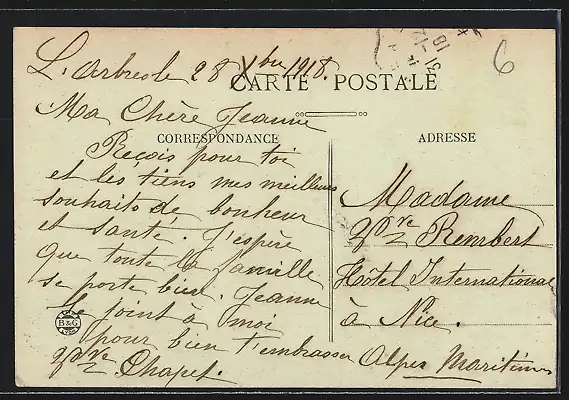 L'Arbresle 28 Xbre 1918.
CARTE POSTALE
Ma Chère Jeanne
CORRESPONDANCE
Reçois pour toi
et les tiens mes meilleurs
souhaits de bonheur
et santé. J'espère
que toute la famille
se porte bien. Jeanne
se joint à moi
pour bien t'embrasser
Vve Chapet.
B&G
ADRESSE
Madame
Vve Rembert
Hôtel International
à Nice.
Alpes Maritimes
6